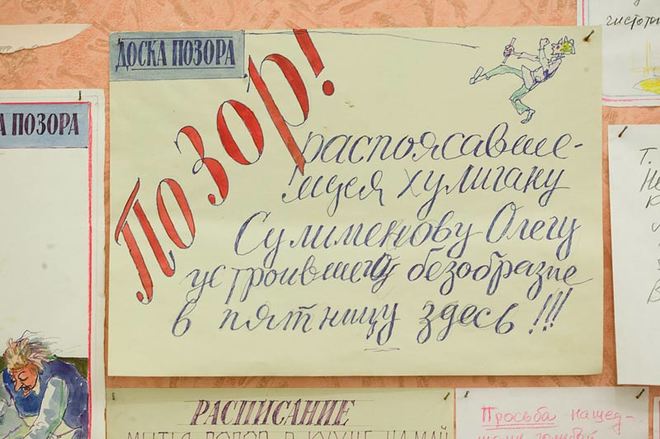 ДОСКА ПОЗОРА
ПОЗОР!
распоясавше-
муся хулигану
Сулименову Олегу
устроившему безобразие
в пятницу здесь!!!
А ПОЗОРА
РАСПИСАНИЕ
МЫТЬЯ ПОЛОВ В КУХНЕ НА МАЙ
Просьба нашед-